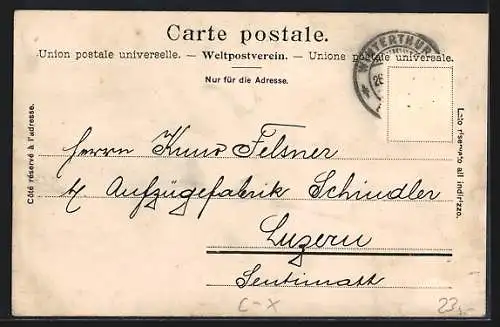 Carte postale.
Union postale universelle. — Weltpostverein. — Unione postale universale.
Nur für die Adresse.
WINTERTHUR
26
Côté réservé à l'adresse.
Lato riservato all indirizzo.
Herrn Kuno Felsner
Aufzügefabrik Schindler
Luzern
Sentimatt
C-X
23.-